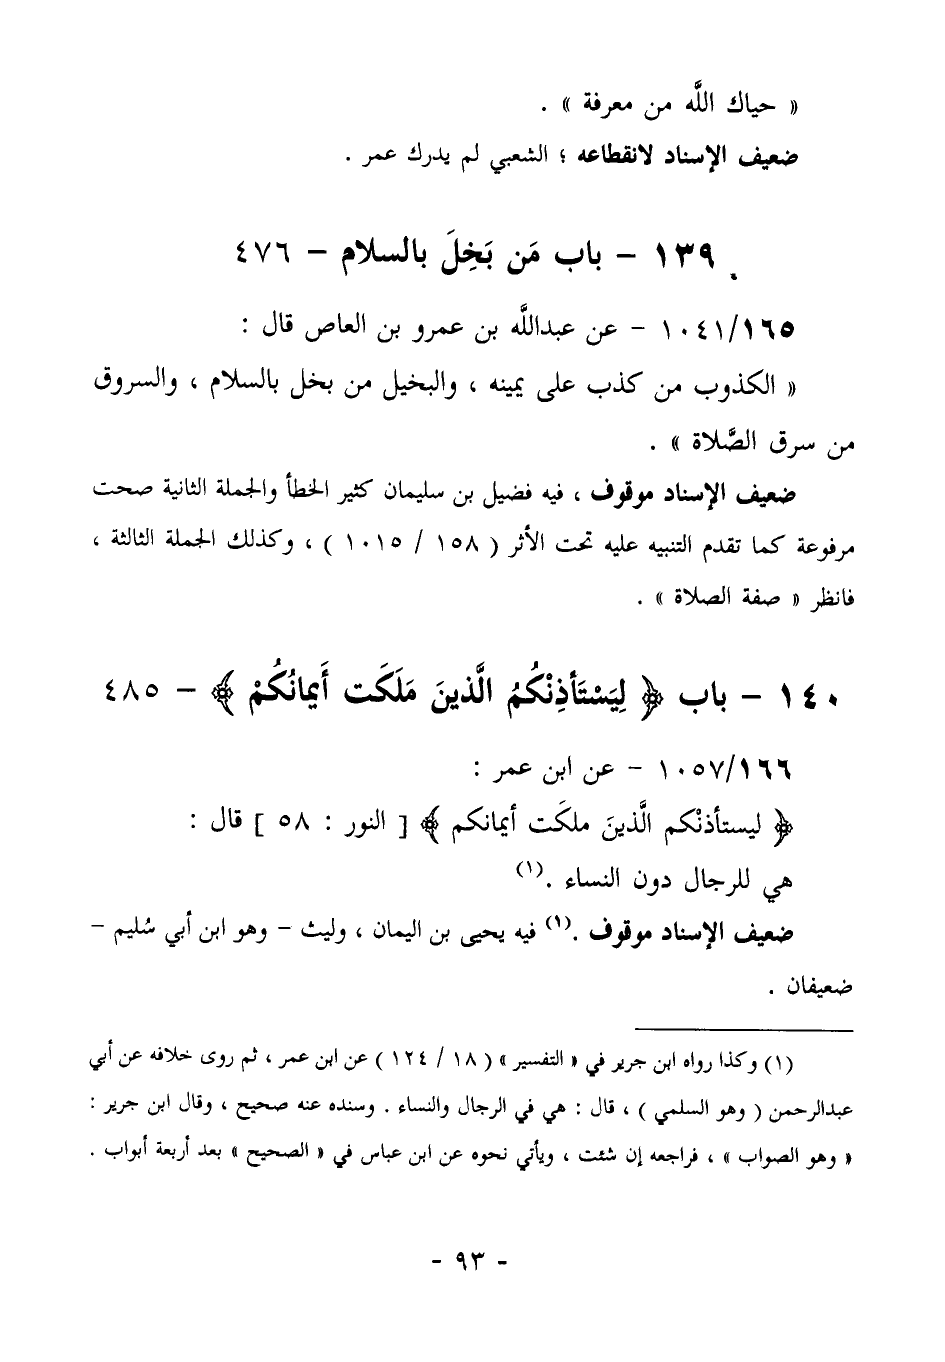 « حياك اللَّه من معرفة » .
ضعيف الإسناد لانقطاعه ؛ الشعبي لم يدرك عمر .
١٣٩ – باب مَن بَخِلَ بالسلام – ٤٧٦
١٠٤١/١٦٥ – عن عبداللَّه بن عمرو بن العاص قال :
« الكذوب من كذب على يمينه ، والبخيل من بخل بالسلام ، والسروق
من سرق الصَّلاة » .
ضعيف الإسناد موقوف ، فيه فضيل بن سليمان كثير الخطأ والجملة الثانية صحت
مرفوعة كما تقدم التنبيه عليه تحت الأثر ( ١٥٨ / ١٠١٥ ) ، وكذلك الجملة الثالثة ،
فانظر « صفة الصلاة » .
١٤٠ – باب ﴿ لِيَسْتَأذِنْكُمُ الَّذينَ مَلَكَت أَيمانُكُمْ ﴾ – ٤٨٥
١٠٥٧/١٦٦ – عن ابن عمر :
﴿ ليستأذنْكم الَّذينَ ملكَت أيمانكم ﴾ [ النور : ٥٨ ] قال :
هي للرجال دون النساء .(١)
ضعيف الإسناد موقوف .(١) فيه يحيى بن اليمان ، وليث – وهو ابن أبي سُليم –
ضعيفان .
(١) وكذا رواه ابن جرير في « التفسير » ( ١٨ / ١٢٤ ) عن ابن عمر ، ثم روى خلافه عن أبي
عبدالرحمن ( وهو السلمي ) ، قال : هي في الرجال والنساء . وسنده عنه صحيح ، وقال ابن جرير :
« وهو الصواب » ، فراجعه إن شئت ، ويأتي نحوه عن ابن عباس في « الصحيح » بعد أربعة أبواب .
- ٩٣ -